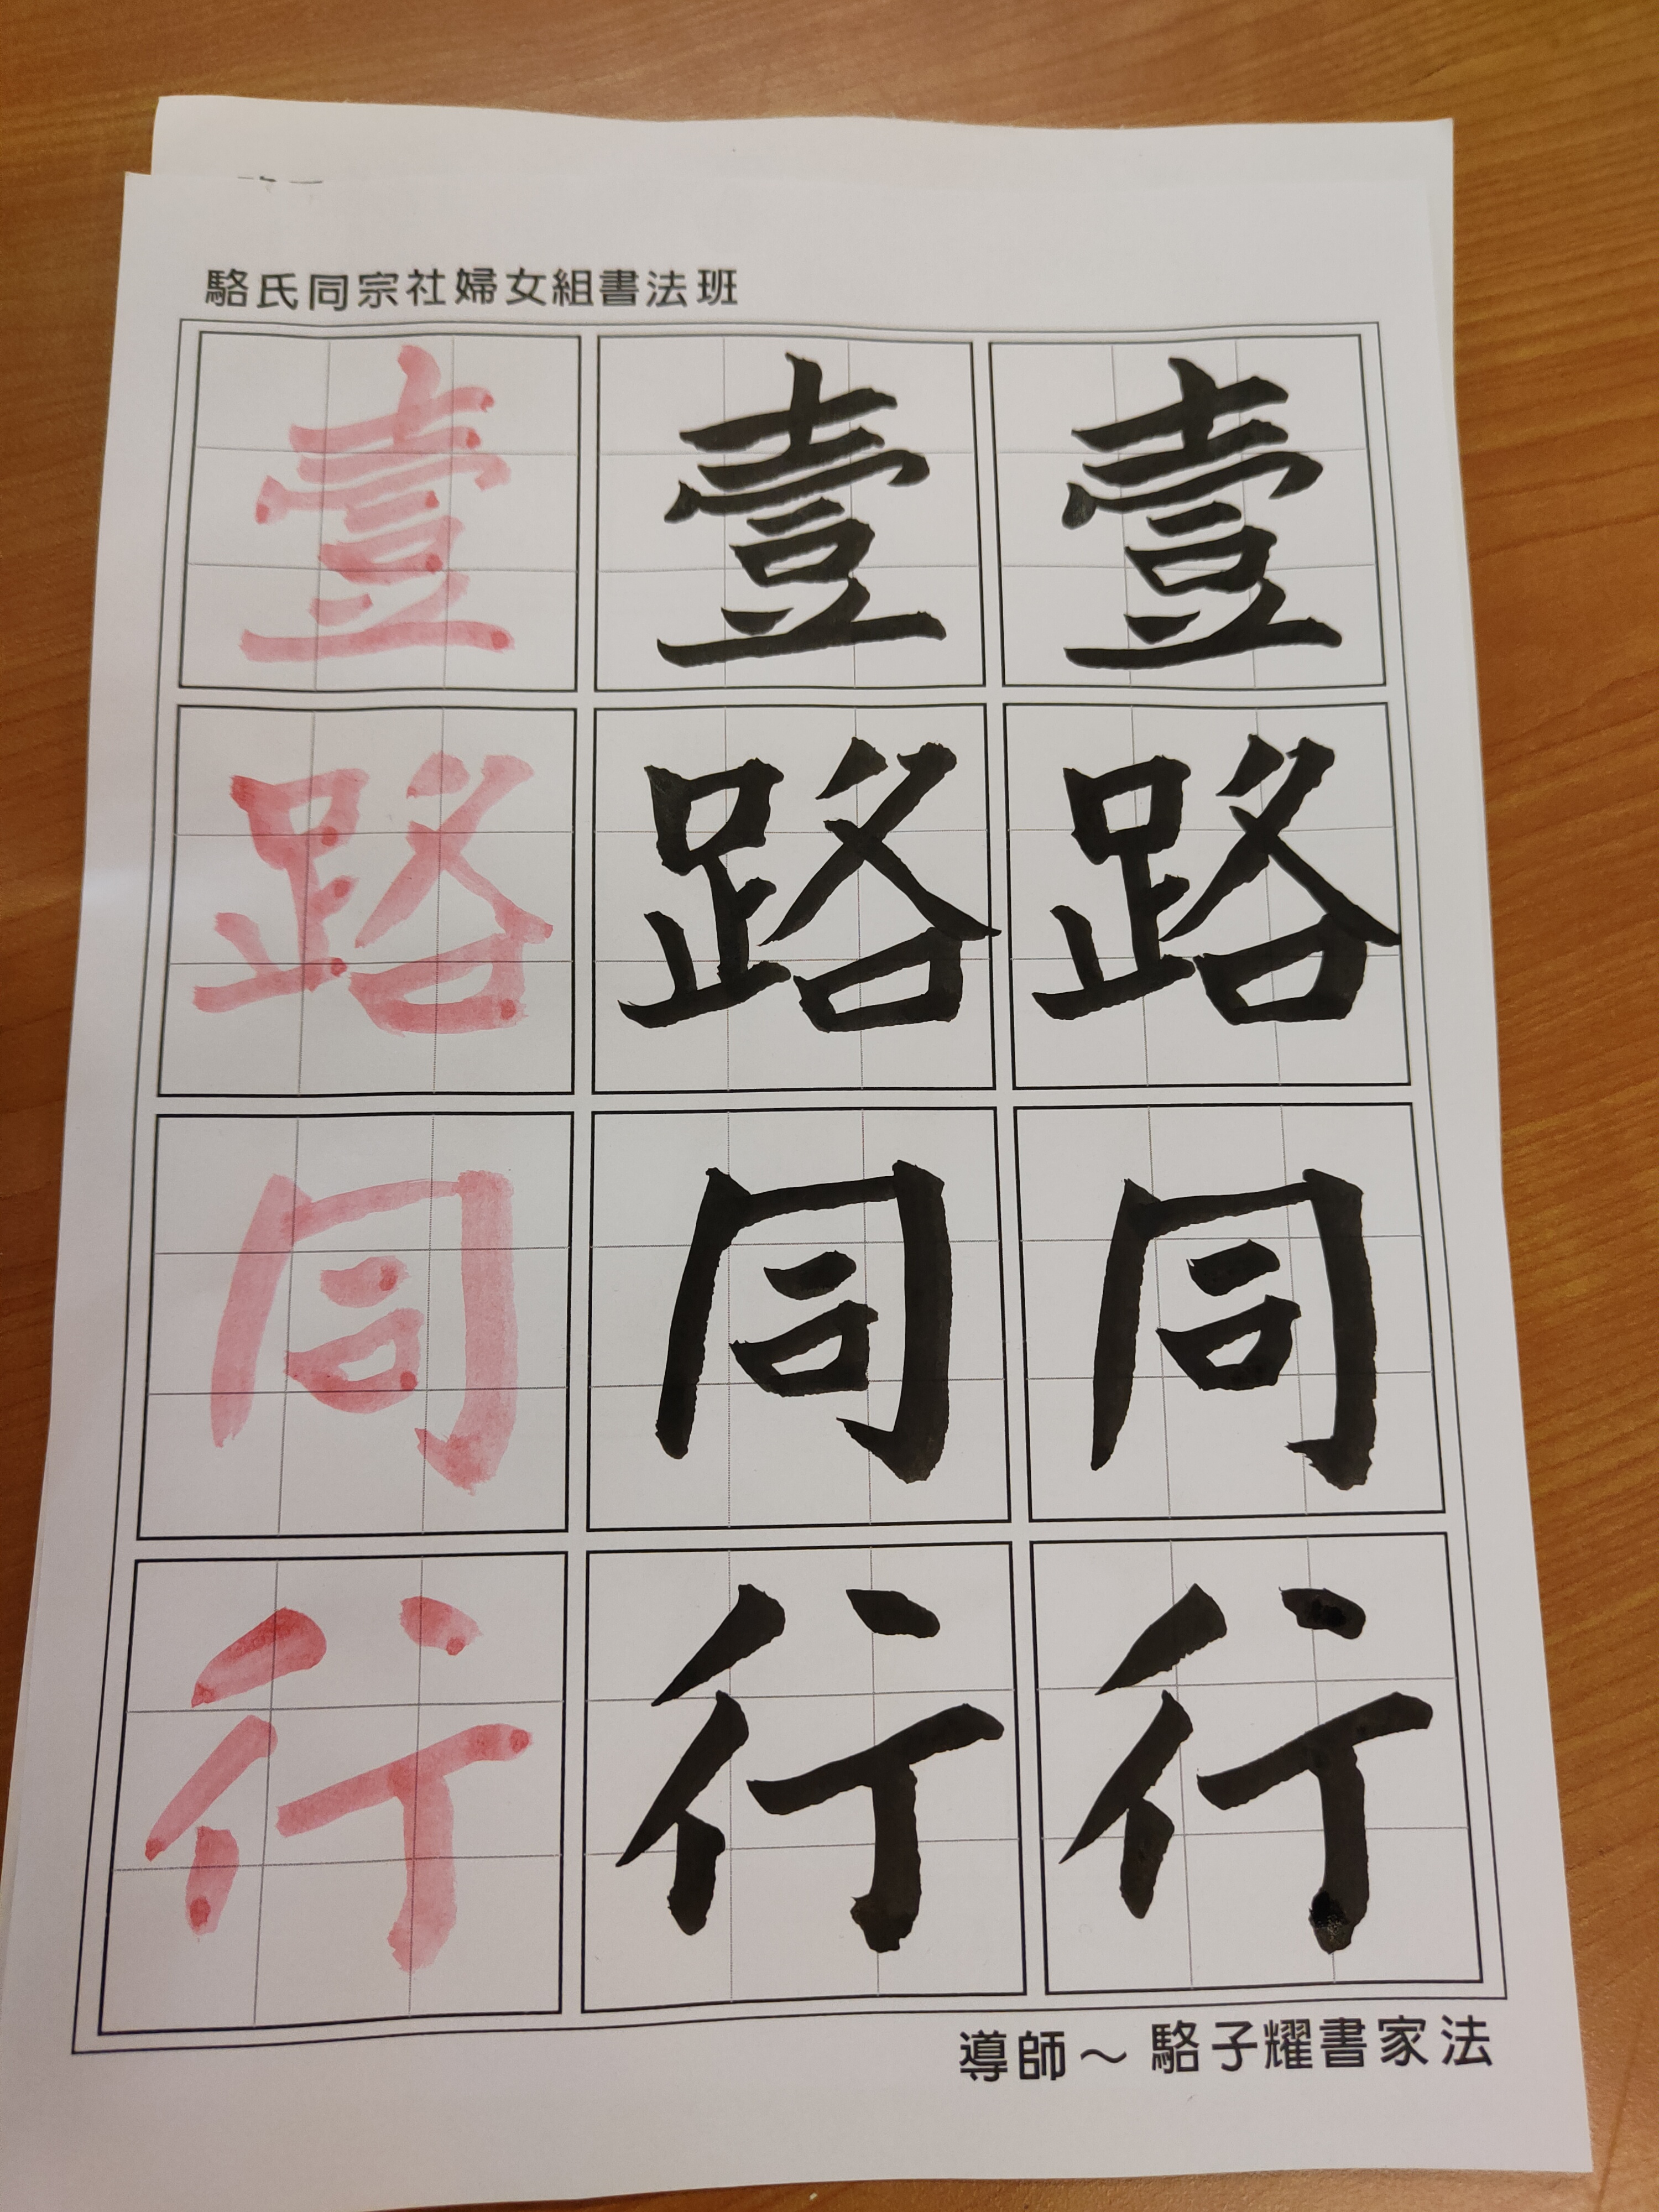 駱氏同宗社婦女組書法班
壹 壹 壹
路 路 路
同 同 同
行 行 行
導師～駱子耀書家法